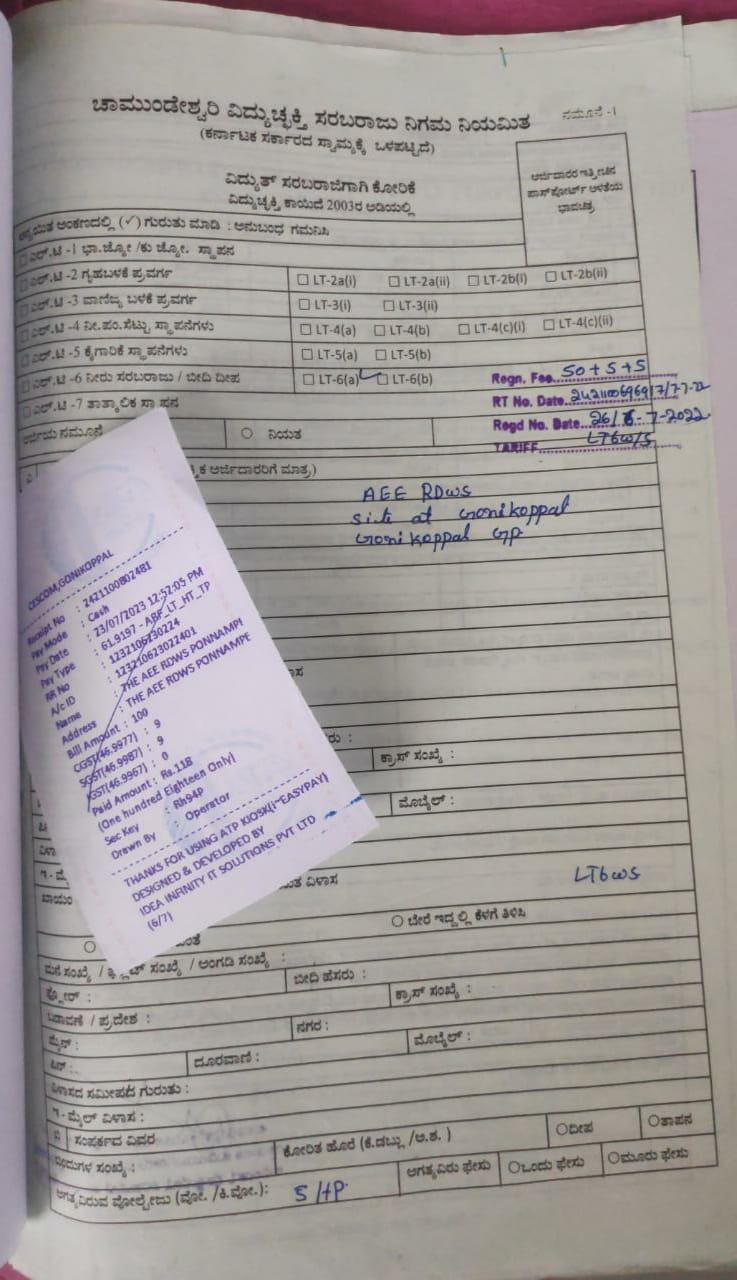 ನಮೂನೆ -1
ಚಾಮುಂಡೇಶ್ವರಿ ವಿದ್ಯುಚ್ಛಕ್ತಿ ಸರಬರಾಜು ನಿಗಮ ನಿಯಮಿತ
(ಕರ್ನಾಟಕ ಸರ್ಕಾರದ ಸ್ವಾಮ್ಯಕ್ಕೆ ಒಳಪಟ್ಟಿದೆ)
ಅರ್ಜಿದಾರರ ಇತ್ತೀಚಿನ
ಪಾಸ್‌ಪೋರ್ಟ್ ಅಳತೆಯ
ಭಾವಚಿತ್ರ
ವಿದ್ಯುತ್ ಸರಬರಾಜಿಗಾಗಿ ಕೋರಿಕೆ
ವಿದ್ಯುಚ್ಛಕ್ತಿ ಕಾಯಿದೆ 2003ರ ಅಡಿಯಲ್ಲಿ
ಅಂಕಣದಲ್ಲಿ (✓) ಗುರುತು ಮಾಡಿ : ಅನುಬಂಧ ಗಮನಿಸಿ
☐ ಎಲ್.ಟಿ -1 ಭಾ.ಜ್ಯೋ /ಕು ಜ್ಯೋ. ಸ್ಥಾಪನ
☐ ಎಲ್.ಟಿ -2 ಗೃಹಬಳಕೆ ಪ್ರವರ್ಗ ☐ LT-2a(i) ☐ LT-2a(ii) ☐ LT-2b(i) ☐ LT-2b(ii)
☐ ಎಲ್.ಟಿ -3 ವಾಣಿಜ್ಯ ಬಳಕೆ ಪ್ರವರ್ಗ ☐ LT-3(i) ☐ LT-3(ii)
☐ ಎಲ್.ಟಿ -4 ನೀ.ಪಂ.ಸೆಟ್ಟು ಸ್ಥಾಪನೆಗಳು ☐ LT-4(a) ☐ LT-4(b) ☐ LT-4(c)(i) ☐ LT-4(c)(ii)
☐ ಎಲ್.ಟಿ -5 ಕೈಗಾರಿಕೆ ಸ್ಥಾಪನೆಗಳು ☐ LT-5(a) ☐ LT-5(b)
☐ ಎಲ್.ಟಿ -6 ನೀರು ಸರಬರಾಜು / ಬೀದಿ ದೀಪ ☐ LT-6(a) ✓ ☐ LT-6(b)
☐ ಎಲ್.ಟಿ -7 ತಾತ್ಕಾಲಿಕ ಸ್ಥಾಪನ
Regn. Fee 50 + 5 + 5
RT No. Date
Regd No. Date 26/ -7-2022
TARIFF LT6W/S
ಅರ್ಜಿಯ ನಮೂನೆ ○ ನಿಯತ
ಅರ್ಜಿದಾರರಿಗೆ ಮಾತ್ರ)
AEE RDWS
site at Gonikoppal
Gonikoppal GP
CESCOM,GONIKOPPAL
Receipt No : 2421100802481
Pay Mode : Cash
Pay Date : 23/07/2023 12:52:05 PM
Pay Type : 61.9197 - ABF_LT_HT_TP
RR No : 1232106230224
A/c ID : 123210623022401
Name : THE AEE RDWS PONNAMPE
Address : THE AEE RDWS PONNAMPE
Bill Amount : 100
CGST(46.9977) : 9
SGST(46.9987) : 9
IGST(46.9967) : 0
Paid Amount : Rs.118
(One hundred Eighteen Only)
Sec Key : Rh94P
Drawn By : Operator
THANKS FOR USING ATP KIOSK(i~EASYPAY)
DESIGNED & DEVELOPED BY
IDEA INFINITY IT SOLUTIONS PVT LTD
(6/7)
ಕ್ರಾಸ್ ಸಂಖ್ಯೆ :
ಮೊಬೈಲ್ :
ವಿಳಾಸ
LT6WS
○ ಬೇರೆ ಇದ್ದಲ್ಲಿ ಕೆಳಗೆ ತಿಳಿಸಿ
ಮನೆ ಸಂಖ್ಯೆ / ಫ್ಲಾಟ್ ಸಂಖ್ಯೆ / ಅಂಗಡಿ ಸಂಖ್ಯೆ :
ಫ್ಲೋರ್ : ಬೀದಿ ಹೆಸರು :
ಬಡಾವಣೆ / ಪ್ರದೇಶ : ಕ್ರಾಸ್ ಸಂಖ್ಯೆ :
ಮೈನ್ : ನಗರ :
ಪಿನ್ : ದೂರವಾಣಿ : ಮೊಬೈಲ್ :
ವಿಳಾಸದ ಸಮೀಪದ ಗುರುತು :
ಇ-ಮೈಲ್ ವಿಳಾಸ :
ಸಂಪರ್ಕದ ವಿವರ
ಬಿಂದುಗಳ ಸಂಖ್ಯೆ : ಕೋರಿತ ಹೊರೆ (ಕಿ.ಡಬ್ಲು /ಅ.ಶ. ) ○ದೀಪ ○ತಾಪನ
ಅಗತ್ಯವಿರುವ ವೋಲ್ಟೇಜು (ವೋ. /ಕಿ.ವೋ.): 5 HP. ಅಗತ್ಯವಿರು ಫೇಸು ○ಒಂದು ಫೇಸು ○ಮೂರು ಫೇಸು